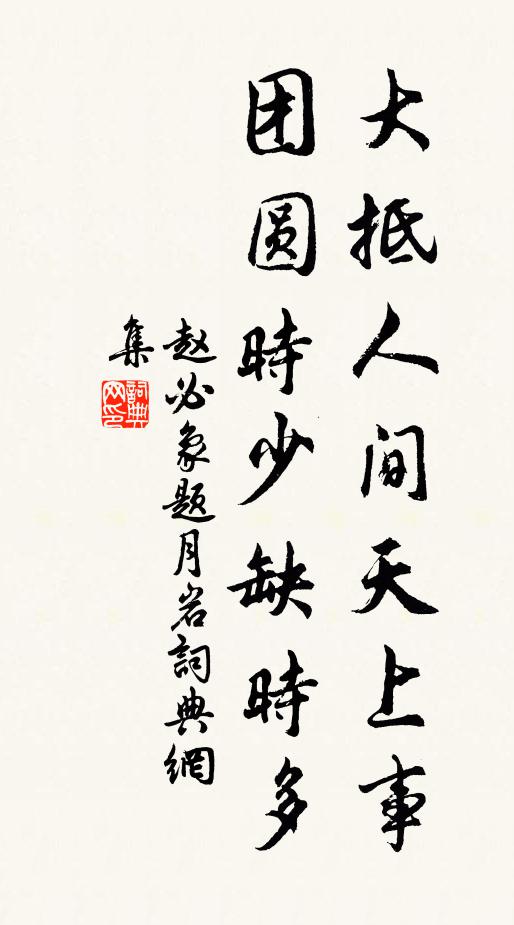 大抵人间天上事
团圆時少缺時多
赵必象题月岩詞典網
集
詞典
网印